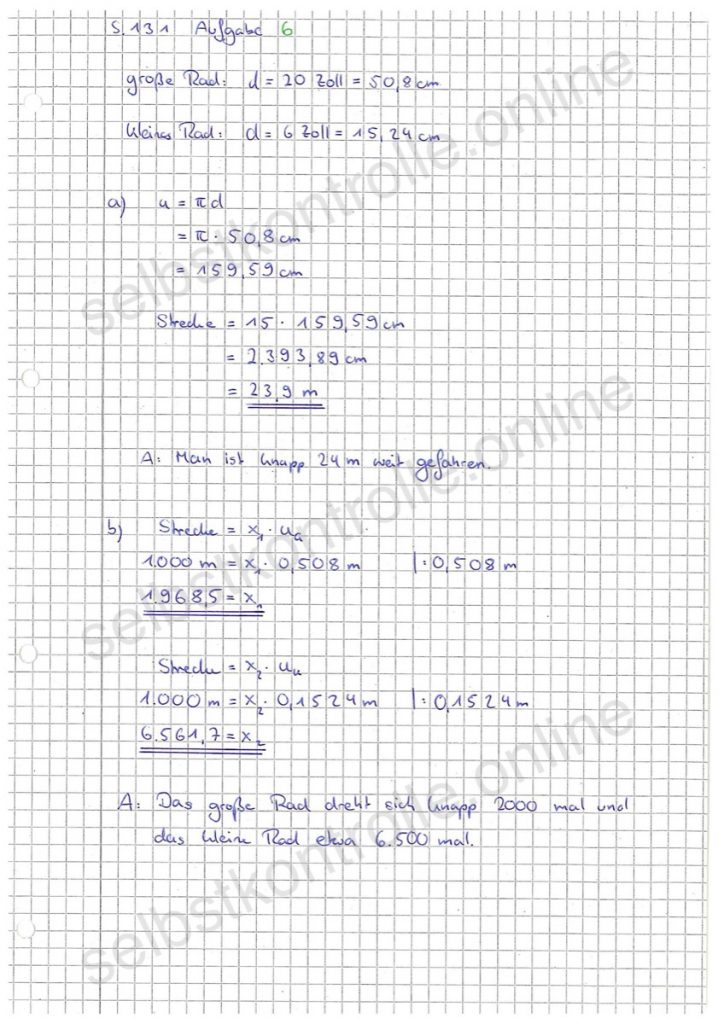 S. 131 Aufgabe 6
große Rad: d = 20 Zoll = 50,8 cm
kleines Rad: d = 6 Zoll = 15,24 cm
a) u = πd
= π · 50,8 cm
= 159,59 cm
Strecke = 15 · 159,59 cm
= 2.393,89 cm
= 23,9 m
A: Man ist knapp 24 m weit gefahren.
b) Strecke = x₁ · u_G
1.000 m = x₁ · 0,508 m |: 0,508 m
1.968,5 = x₁
Strecke = x₂ · u_k
1.000 m = x₂ · 0,1524 m |: 0,1524 m
6.561,7 = x₂
A: Das große Rad dreht sich knapp 2000 mal und
das kleine Rad etwa 6.500 mal.
selbstkontrolle.online
selbstkontrolle.online
selbstkontrolle.online